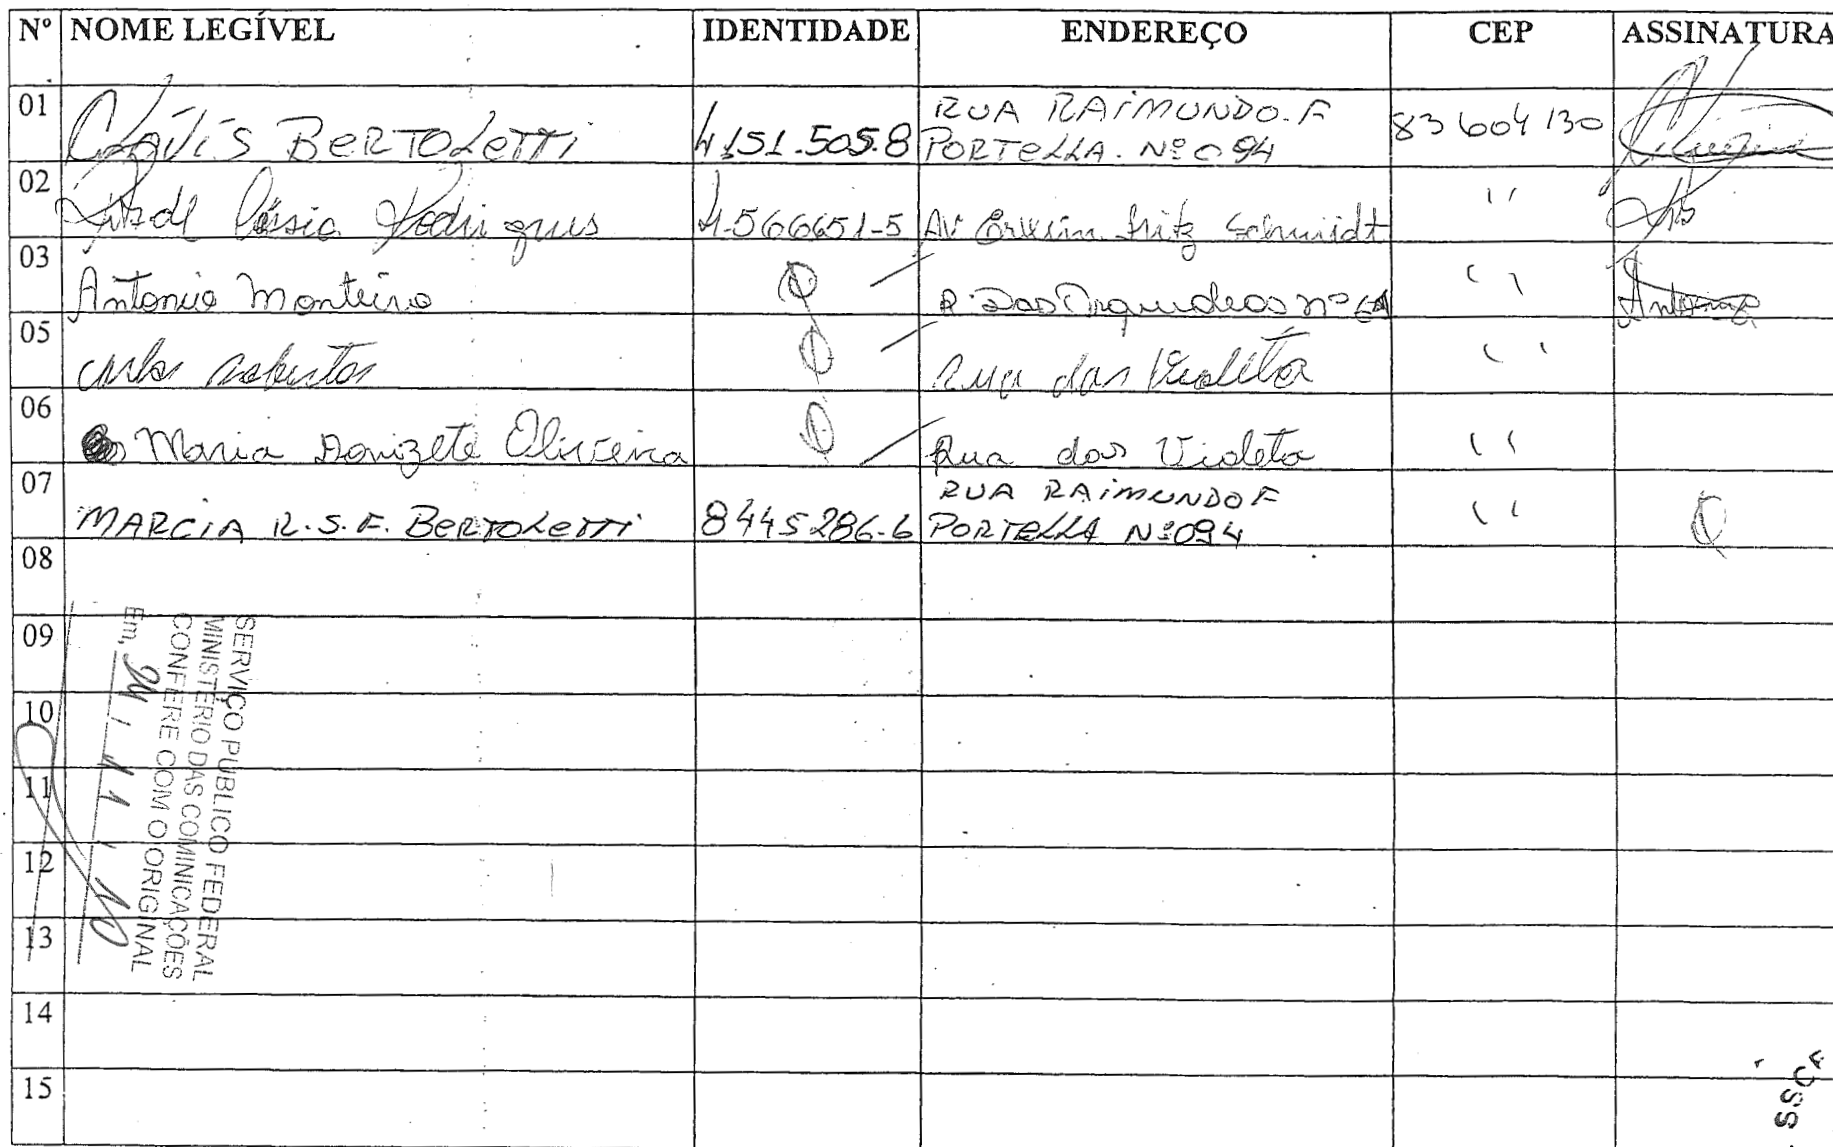 Nº NOME LEGÍVEL IDENTIDADE ENDEREÇO CEP ASSINATURA
01 Clóvis BERTOLETTI 4151.505.8 RUA RAIMUNDO.F
PORTELLA. Nº 094 83604130
02 Rita de Cássia Rodrigues 4.566651-5 Av Erwin Fritz Schmidt ''
03 Antonio Monteiro R. Das Orquideas nº ''  Antonio
05 Roberto Rua das Violeta ''
06 Maria Donizete Oliveira Rua das Violeta ''
07 MARCIA R.S.F. BERTOLETTI 8445286-6 RUA RAIMUNDO F
PORTELLA Nº094 ''
08
09
10
11
12
13
14
15
SERVIÇO PUBLICO FEDERAL
MINISTERIO DAS COMINICAÇÕES
CONFERE COM O ORIGINAL
Em, 24 / 11 / 10